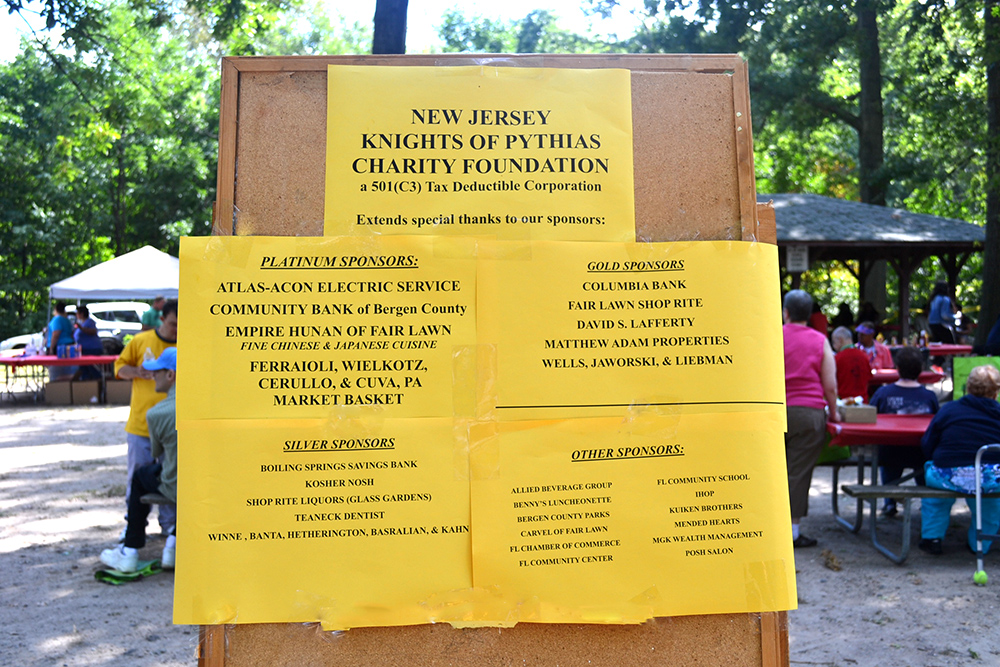 NEW JERSEY
KNIGHTS OF PYTHIAS
CHARITY FOUNDATION
a 501(C3) Tax Deductible Corporation
Extends special thanks to our sponsors:
PLATINUM SPONSORS:
ATLAS-ACON ELECTRIC SERVICE
COMMUNITY BANK of Bergen County
EMPIRE HUNAN OF FAIR LAWN
FINE CHINESE & JAPANESE CUISINE
FERRAIOLI, WIELKOTZ,
CERULLO, & CUVA, PA
MARKET BASKET
GOLD SPONSORS
COLUMBIA BANK
FAIR LAWN SHOP RITE
DAVID S. LAFFERTY
MATTHEW ADAM PROPERTIES
WELLS, JAWORSKI, & LIEBMAN
SILVER SPONSORS
BOILING SPRINGS SAVINGS BANK
KOSHER NOSH
SHOP RITE LIQUORS (GLASS GARDENS)
TEANECK DENTIST
WINNE , BANTA, HETHERINGTON, BASRALIAN, & KAHN
OTHER SPONSORS:
ALLIED BEVERAGE GROUP
BENNY'S LUNCHEONETTE
BERGEN COUNTY PARKS
CARVEL OF FAIR LAWN
FL CHAMBER OF COMMERCE
FL COMMUNITY CENTER
FL COMMUNITY SCHOOL
IHOP
KUIKEN BROTHERS
MENDED HEARTS
MGK WEALTH MANAGEMENT
POSH SALON